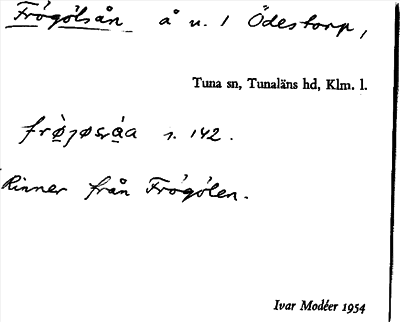 Frögölsån å n. 1 Ödestorp,
Tuna sn, Tunaläns hd, Klm. l.
s. 142.
Rinner från Frögölen.
Ivar Modéer 1954